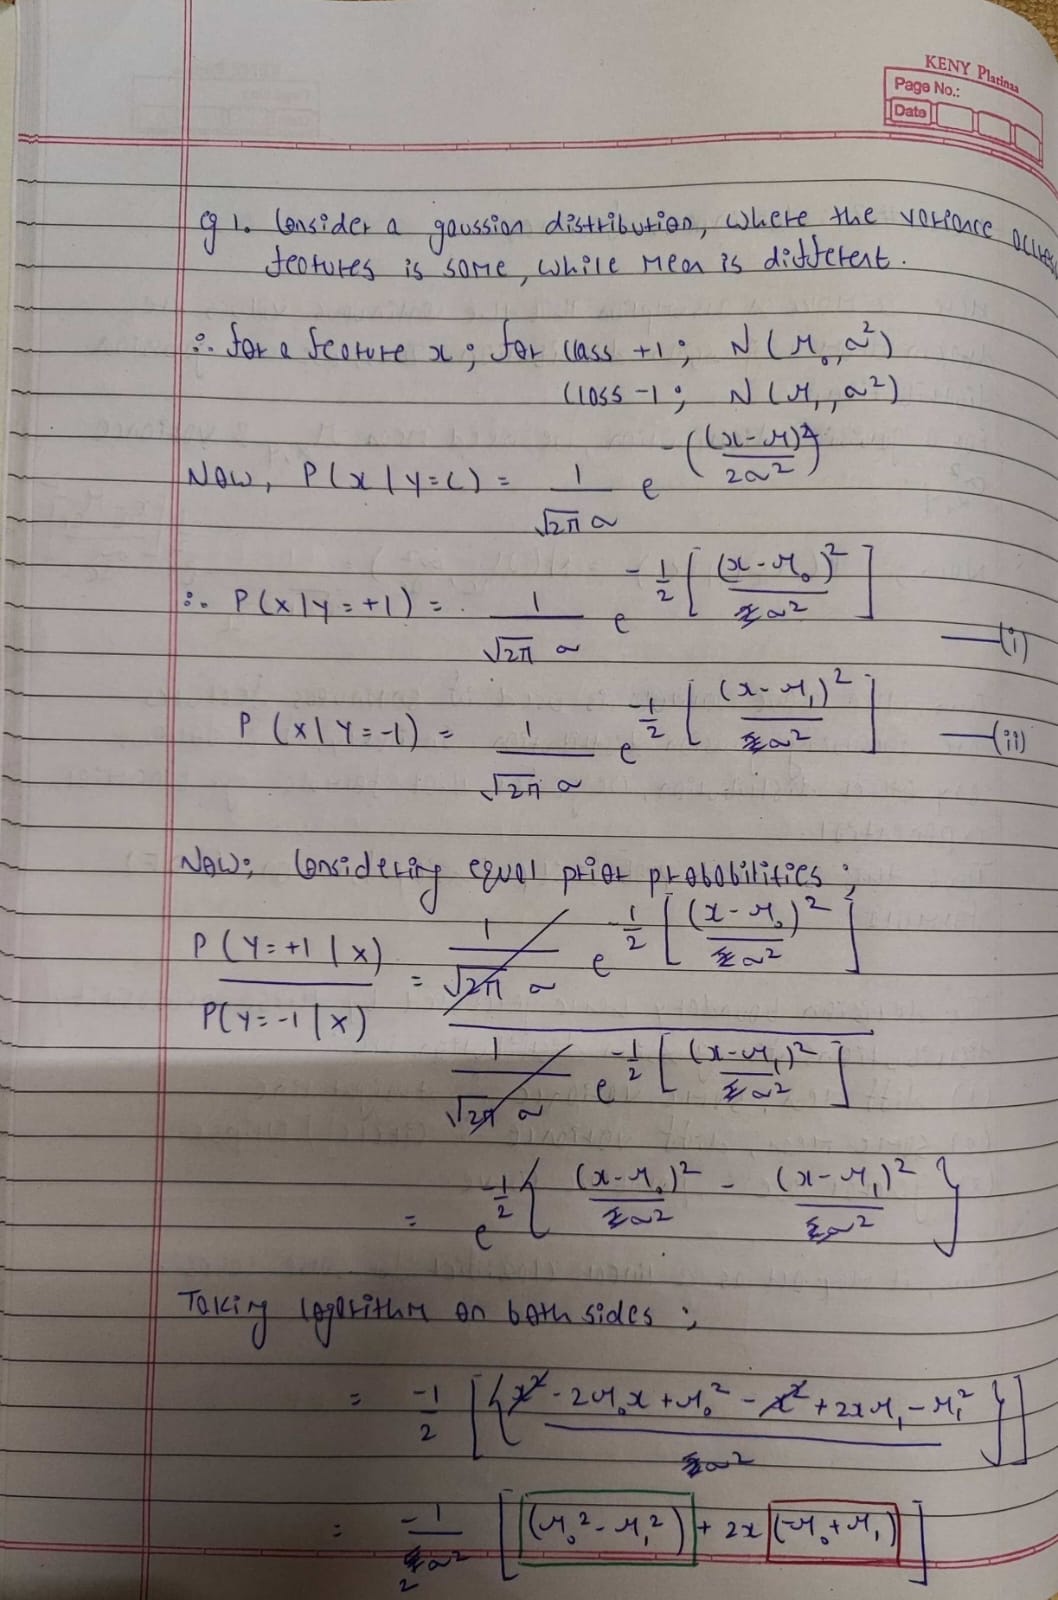 KENY Platinaa
Page No.:
Date
Q 1. Consider a gaussian distribution, where the variance across
features is same, while mean is different.
∴ for a feature x; for class +1; N(μ₀, σ²)
class -1; N(μ₁, σ²)
Now, P(x | y=c) = 1/(√2π σ) e^-((x-μ)²/2σ²)
∴ P(x|y=+1) = 1/(√2π σ) e^-1/2[(x-μ₀)²/σ²] —(i)
P(x|y=-1) = 1/(√2π σ) e^-1/2[(x-μ₁)²/σ²] —(ii)
Now; Considering equal prior probabilities;
P(y=+1|x)/P(y=-1|x) = 1/(√2π σ) e^-1/2[(x-μ₀)²/σ²] / 1/(√2π σ) e^-1/2[(x-μ₁)²/σ²]
= e^-1/2{(x-μ₀)²/σ² - (x-μ₁)²/σ²}
Taking logarithm on both sides;
= -1/2 [{x² - 2μ₀x + μ₀² - x² + 2xμ₁ - μ₁²}/σ²]
= -1/2σ² [(μ₀² - μ₁²) + 2x(-μ₀ + μ₁)]